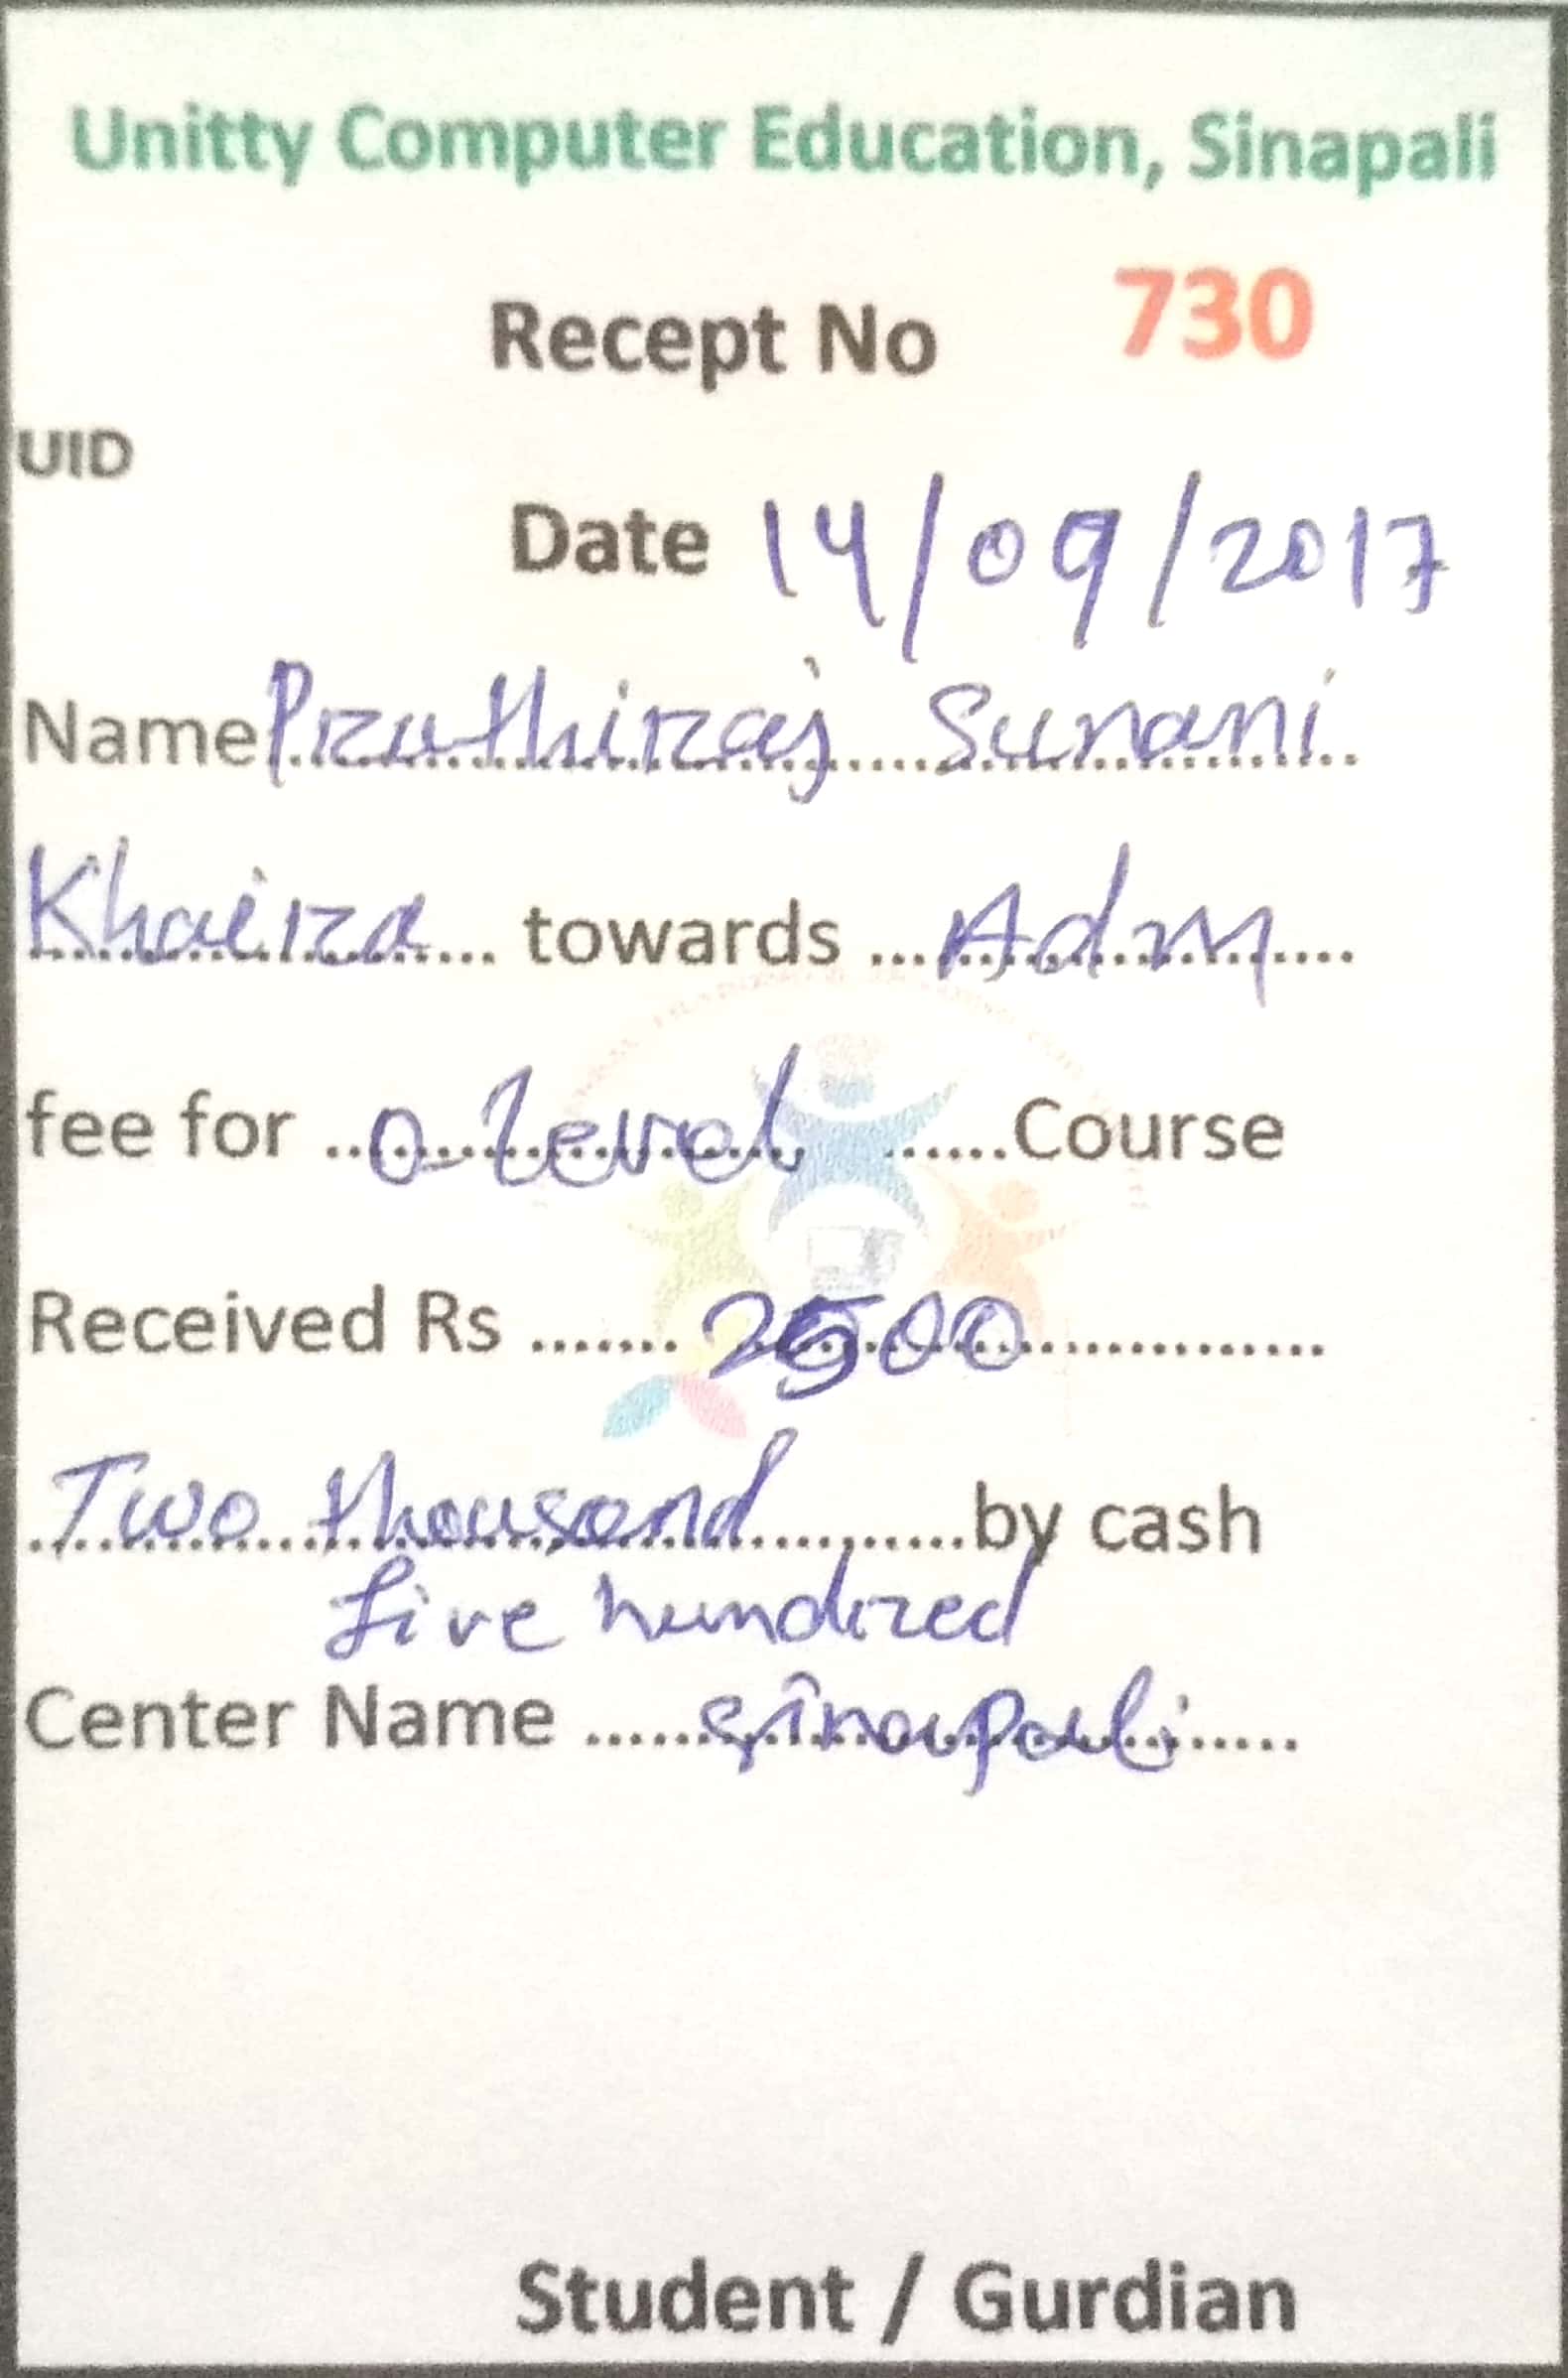 Unitty Computer Education, Sinapali
Recept No 730
UID
Date 14/09/2017
Name Pruthiraj Sunani
Khaira towards Adm
fee for O-Level Course
Received Rs 2500
Two thousand by cash
five hundred
Center Name Sinapali
Student / Gurdian